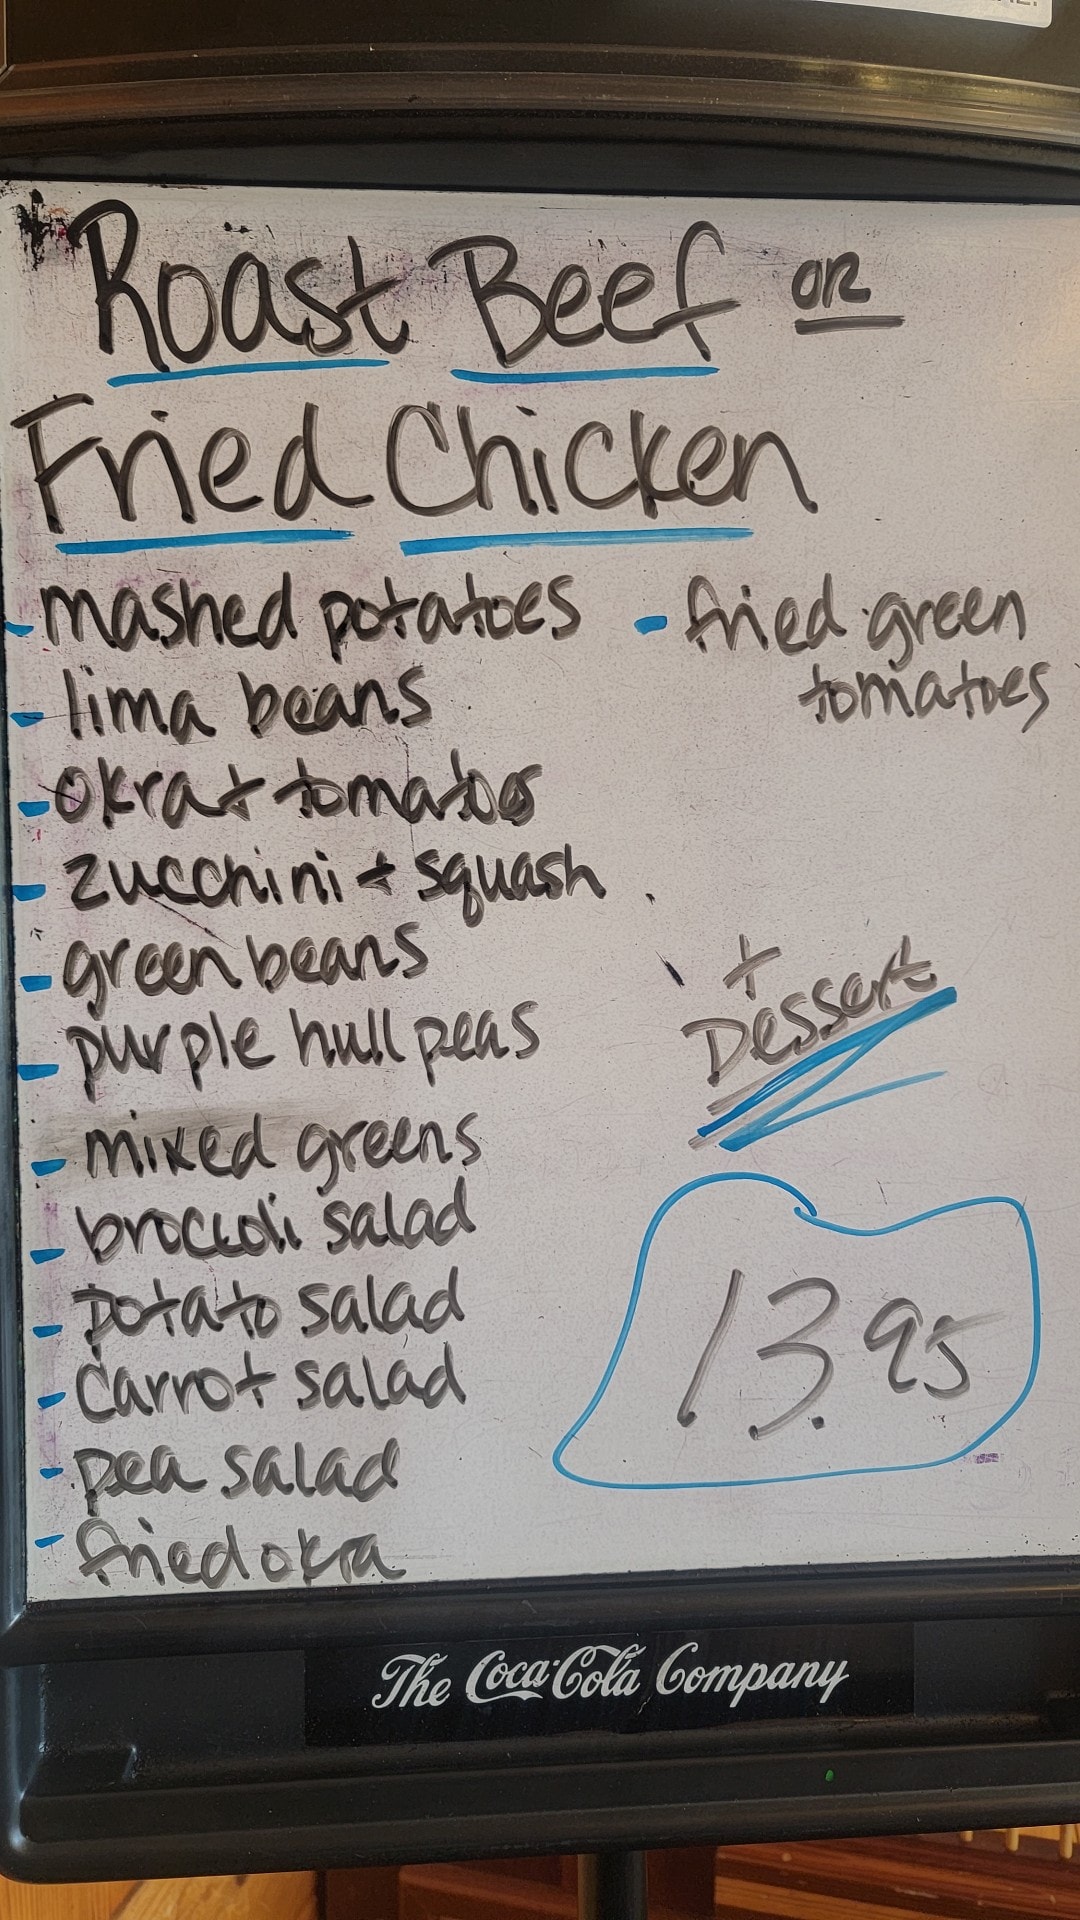 Roast Beef OR
Fried Chicken
- mashed potatoes
- lima beans
- okra + tomatoes
- zucchini + squash
- green beans
- purple hull peas
- mixed greens
- broccoli salad
- potato salad
- carrot salad
- pea salad
- fried okra
- fried green
tomatoes
+
Dessert
13.95
The Coca-Cola Company